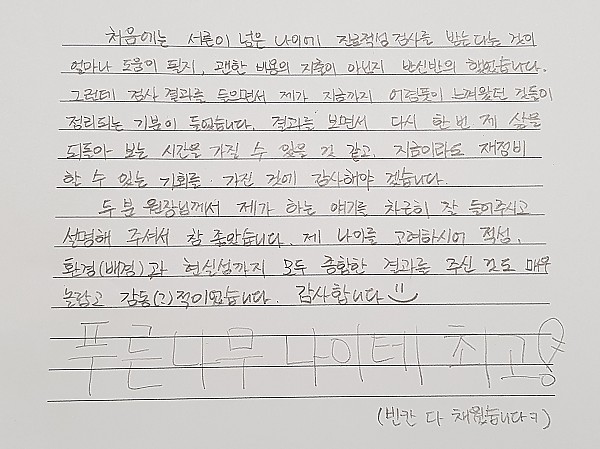 처음에는 서른이 넘은 나이에 진로적성 검사를 받는다는 것이
얼마나 도움이 될지, 괜한 비용의 지출이 아닌지 반신반의 했었습니다.
그런데 검사 결과를 들으면서 제가 지금까지 어렴풋이 느껴왔던 것들이
정리되는 기분이 들었습니다. 결과를 보면서 다시 한번 제 삶을
되돌아 보는 시간을 가질 수 있을 것 같고, 지금이라도 재정비
할 수 있는 기회를 가진 것에 감사해야 겠습니다.
두 분 원장님께서 제가 하는 얘기를 차근히 잘 들어주시고
설명해 주셔서 참 좋았습니다. 제 나이를 고려하시어 적성,
환경(배경)과 현실성까지 모두 종합한 결과를 주신 것도 매우
놀랍고 감동(?)적이었습니다. 감사합니다
푸른나무 나이테 최고!
(빈칸 다 채웠습니다ㅋ)